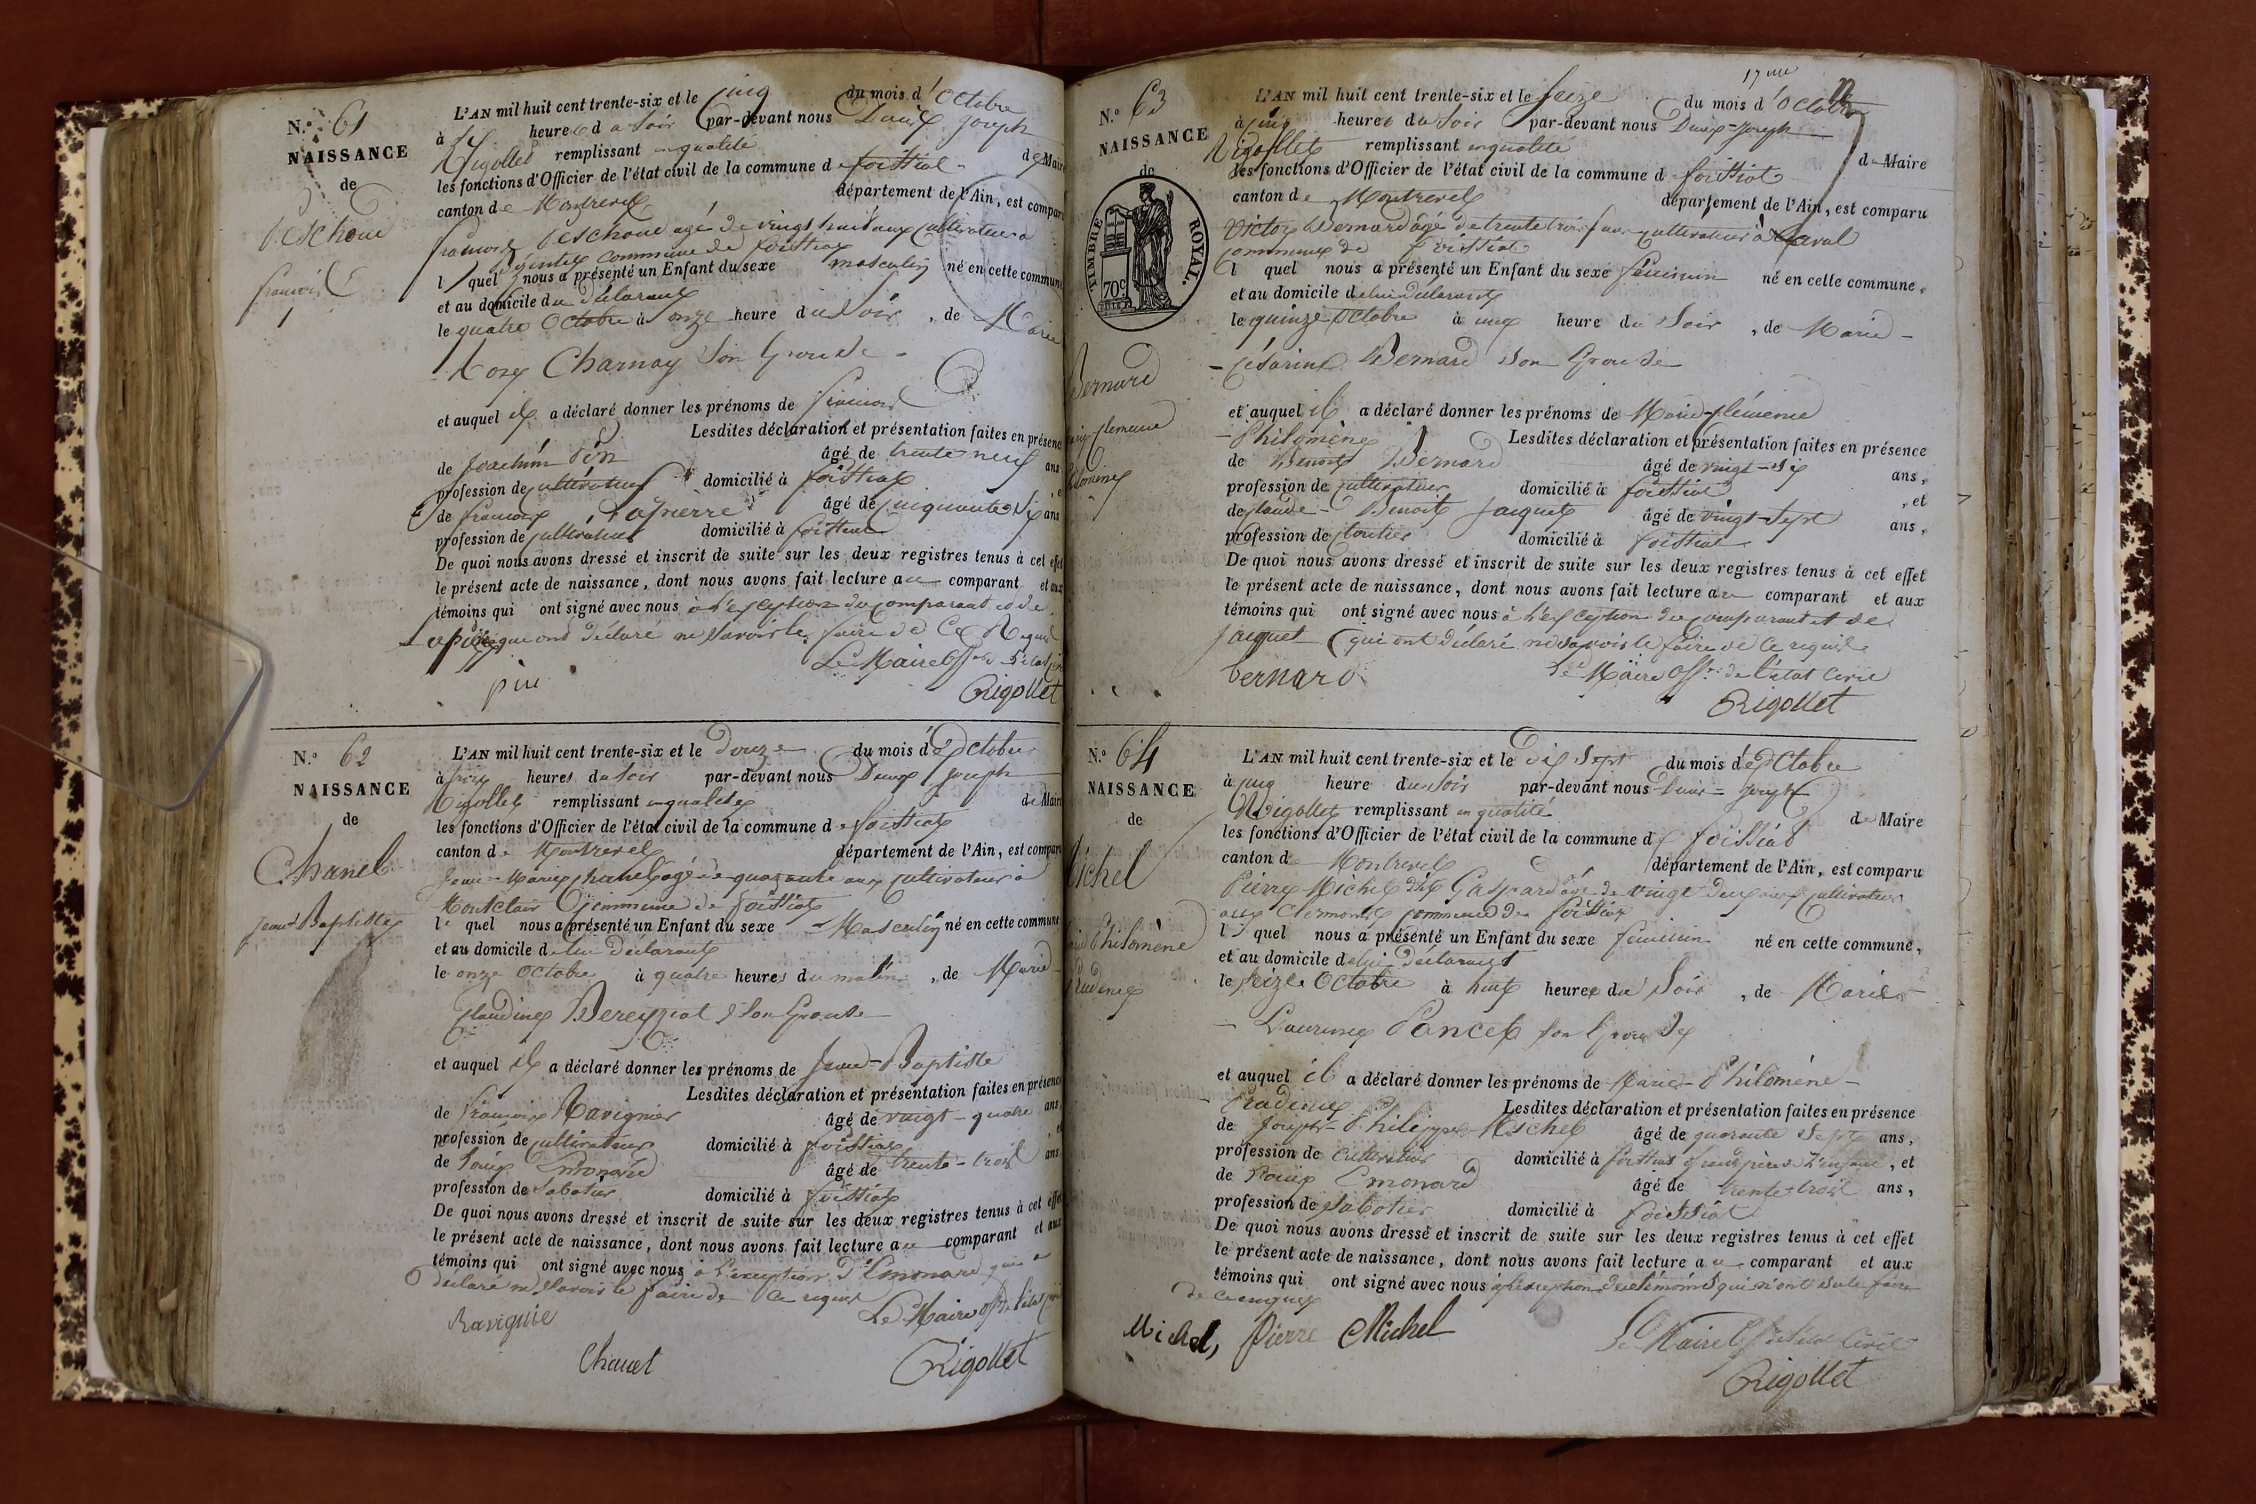 N.º 61
NAISSANCE
de
Peschoud
françois
L'AN mil huit cent trente-six et le cinq du mois d'Octobre
à six heures du soir par-devant nous Denis Joseph
Rigollet remplissant en qualité de Maire
les fonctions d'Officier de l'état civil de la commune de foissiat
canton de Montrevel département de l'Ain, est comparu
françois Peschoud agé de vingt huit ans cultivateur à
commune de foissiat
lequel nous a présenté un Enfant du sexe masculin né en cette commune
et au domicile du déclarant
le quatre Octobre à onze heure du soir, de Marie
Rose Charnay son Epouse
et auquel il a déclaré donner les prénoms de françois
Lesdites déclaration et présentation faites en présence
de Joachim Pin âgé de trente neuf ans
profession de cultivateur domicilié à foissiat
de françois âgé de cinquante six ans
profession de cultivateur domicilié à foissiat
De quoi nous avons dressé et inscrit de suite sur les deux registres tenus à cet effet
le présent acte de naissance, dont nous avons fait lecture au comparant et aux
témoins qui ont signé avec nous à l'exception du comparant et de
que ont déclaré ne savoir le faire de ce Requis
Le Maire off. de l'état
pin
Rigollet
N.º 62
NAISSANCE
de
Chanel
Jean-Baptiste
L'AN mil huit cent trente-six et le Douze du mois d'Octobre
à trois heures du soir par-devant nous Denis Joseph
Rigollet remplissant en qualité de Maire
les fonctions d'Officier de l'état civil de la commune de foissiat
canton de Montrevel département de l'Ain, est comparu
Jean-Marie Chanel agé de quarante ans cultivateur à
Montclair commune de foissiat
lequel nous a présenté un Enfant du sexe Masculin né en cette commune
et au domicile de lui déclarant
le onze Octobre à quatre heures du matin, de Marie
Claudine Bereyziat son Epouse
et auquel il a déclaré donner les prénoms de Jean-Baptiste
Lesdites déclaration et présentation faites en présence
de françois Ravignier âgé de vingt-quatre ans
profession de cultivateur domicilié à foissiat
de Louis Emonard âgé de trente-trois ans
profession de sabotier domicilié à foissiat
De quoi nous avons dressé et inscrit de suite sur les deux registres tenus à cet effet
le présent acte de naissance, dont nous avons fait lecture au comparant et aux
témoins qui ont signé avec nous à l'exception d'Emonard qui a
déclaré ne savoir le faire de ce requis
Le Maire off. de l'état civil
Ravignie
Chanel
Rigollet
17
N.º 63
NAISSANCE
de
TIMBRE ROYAL
70c
Bernard
Marie Clemence
Philomène
L'AN mil huit cent trente-six et le seize du mois d'Octobre
à cinq heures du soir par-devant nous Denis-Joseph
Rigollet remplissant en qualité de Maire
les fonctions d'Officier de l'état civil de la commune de foissiat
canton de Montrevel département de l'Ain, est comparu
Victor Bernard âgé de trente trois ans cultivateur à
commune de foissiat
lequel nous a présenté un Enfant du sexe féminin né en cette commune,
et au domicile de lui déclarant
le quinze Octobre à heure du soir, de Marie-
-Césarine Bernard son Epouse
et auquel il a déclaré donner les prénoms de Marie-Clémence
-Philomène Lesdites déclaration et présentation faites en présence
de Benoit Bernard âgé de vingt-six ans,
profession de cultivateur domicilié à foissiat, et
de Claude-Benoit Jacquet âgé de vingt-sept ans,
profession de cloutier domicilié à foissiat
De quoi nous avons dressé et inscrit de suite sur les deux registres tenus à cet effet
le présent acte de naissance, dont nous avons fait lecture au comparant et aux
témoins qui ont signé avec nous à l'exception du comparant et de
Jacquet qui ont déclaré ne savoir le faire de ce requis
Le Maire off. de l'état civil
bernard
Rigollet
N.º 64
NAISSANCE
de
Michel
Marie Philomène
Prudence
L'AN mil huit cent trente-six et le dix sept du mois d'Octobre
à cinq heure du soir par-devant nous Denis-Joseph
Rigollet remplissant en qualité de Maire
les fonctions d'Officier de l'état civil de la commune de foissiat
canton de Montrevel département de l'Ain, est comparu
Pierre Michel dit Gaspard agé de vingt deux ans cultivateur
aux Clermonts commune de foissiat
lequel nous a présenté un Enfant du sexe féminin né en cette commune,
et au domicile de lui déclarant
le seize Octobre à huit heures du soir, de Marie-
-Laurence Poncet son Epouse
et auquel il a déclaré donner les prénoms de Marie-Philomène-
-Prudence Lesdites déclaration et présentation faites en présence
de Joseph-Philippe Michel âgé de quarante sept ans,
profession de cultivateur domicilié à foissiat grand père de l'enfant, et
de Louis Emonard âgé de trente-trois ans,
profession de sabotier domicilié à foissiat
De quoi nous avons dressé et inscrit de suite sur les deux registres tenus à cet effet
le présent acte de naissance, dont nous avons fait lecture au comparant et aux
témoins qui ont signé avec nous à l'exception témoins qui n'ont su le faire
de ce enquis
Michel, Pierre Michel
Le Maire off. de l'état civil
Rigollet